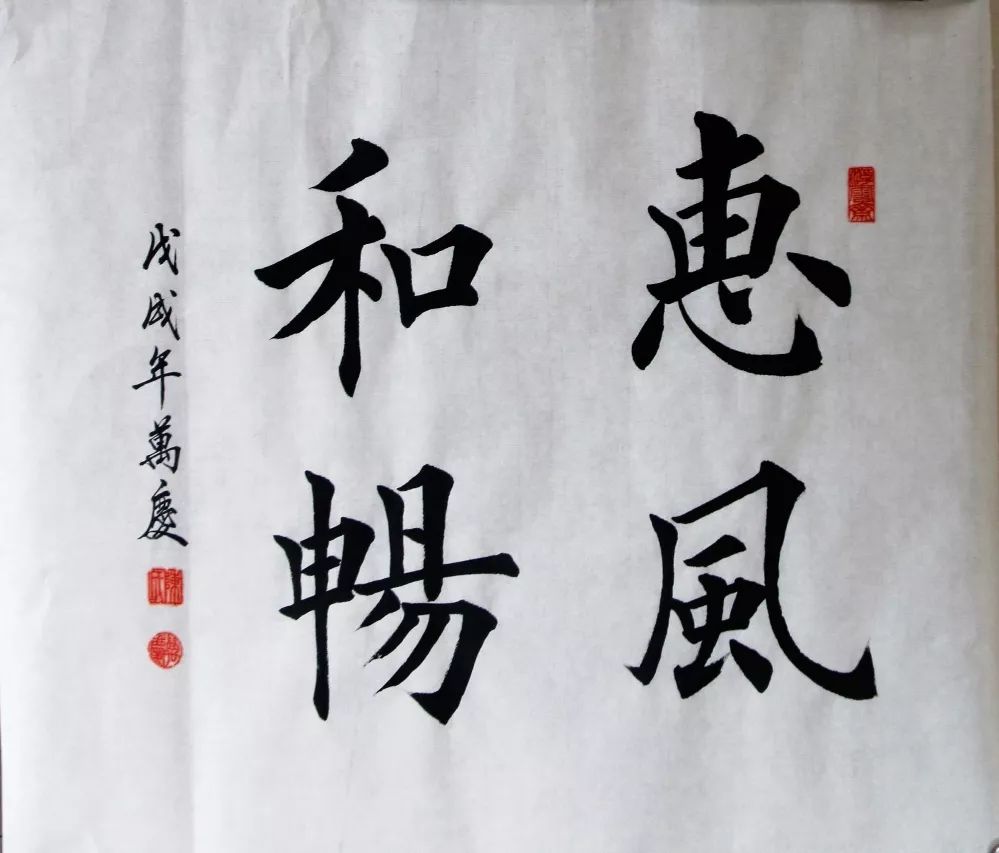 惠風
和暢
戊戌年萬慶